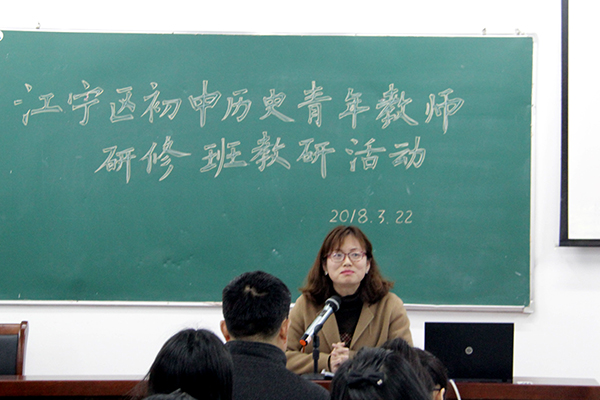 江宁区初中历史青年教师
研修班教研活动
2018.3.22